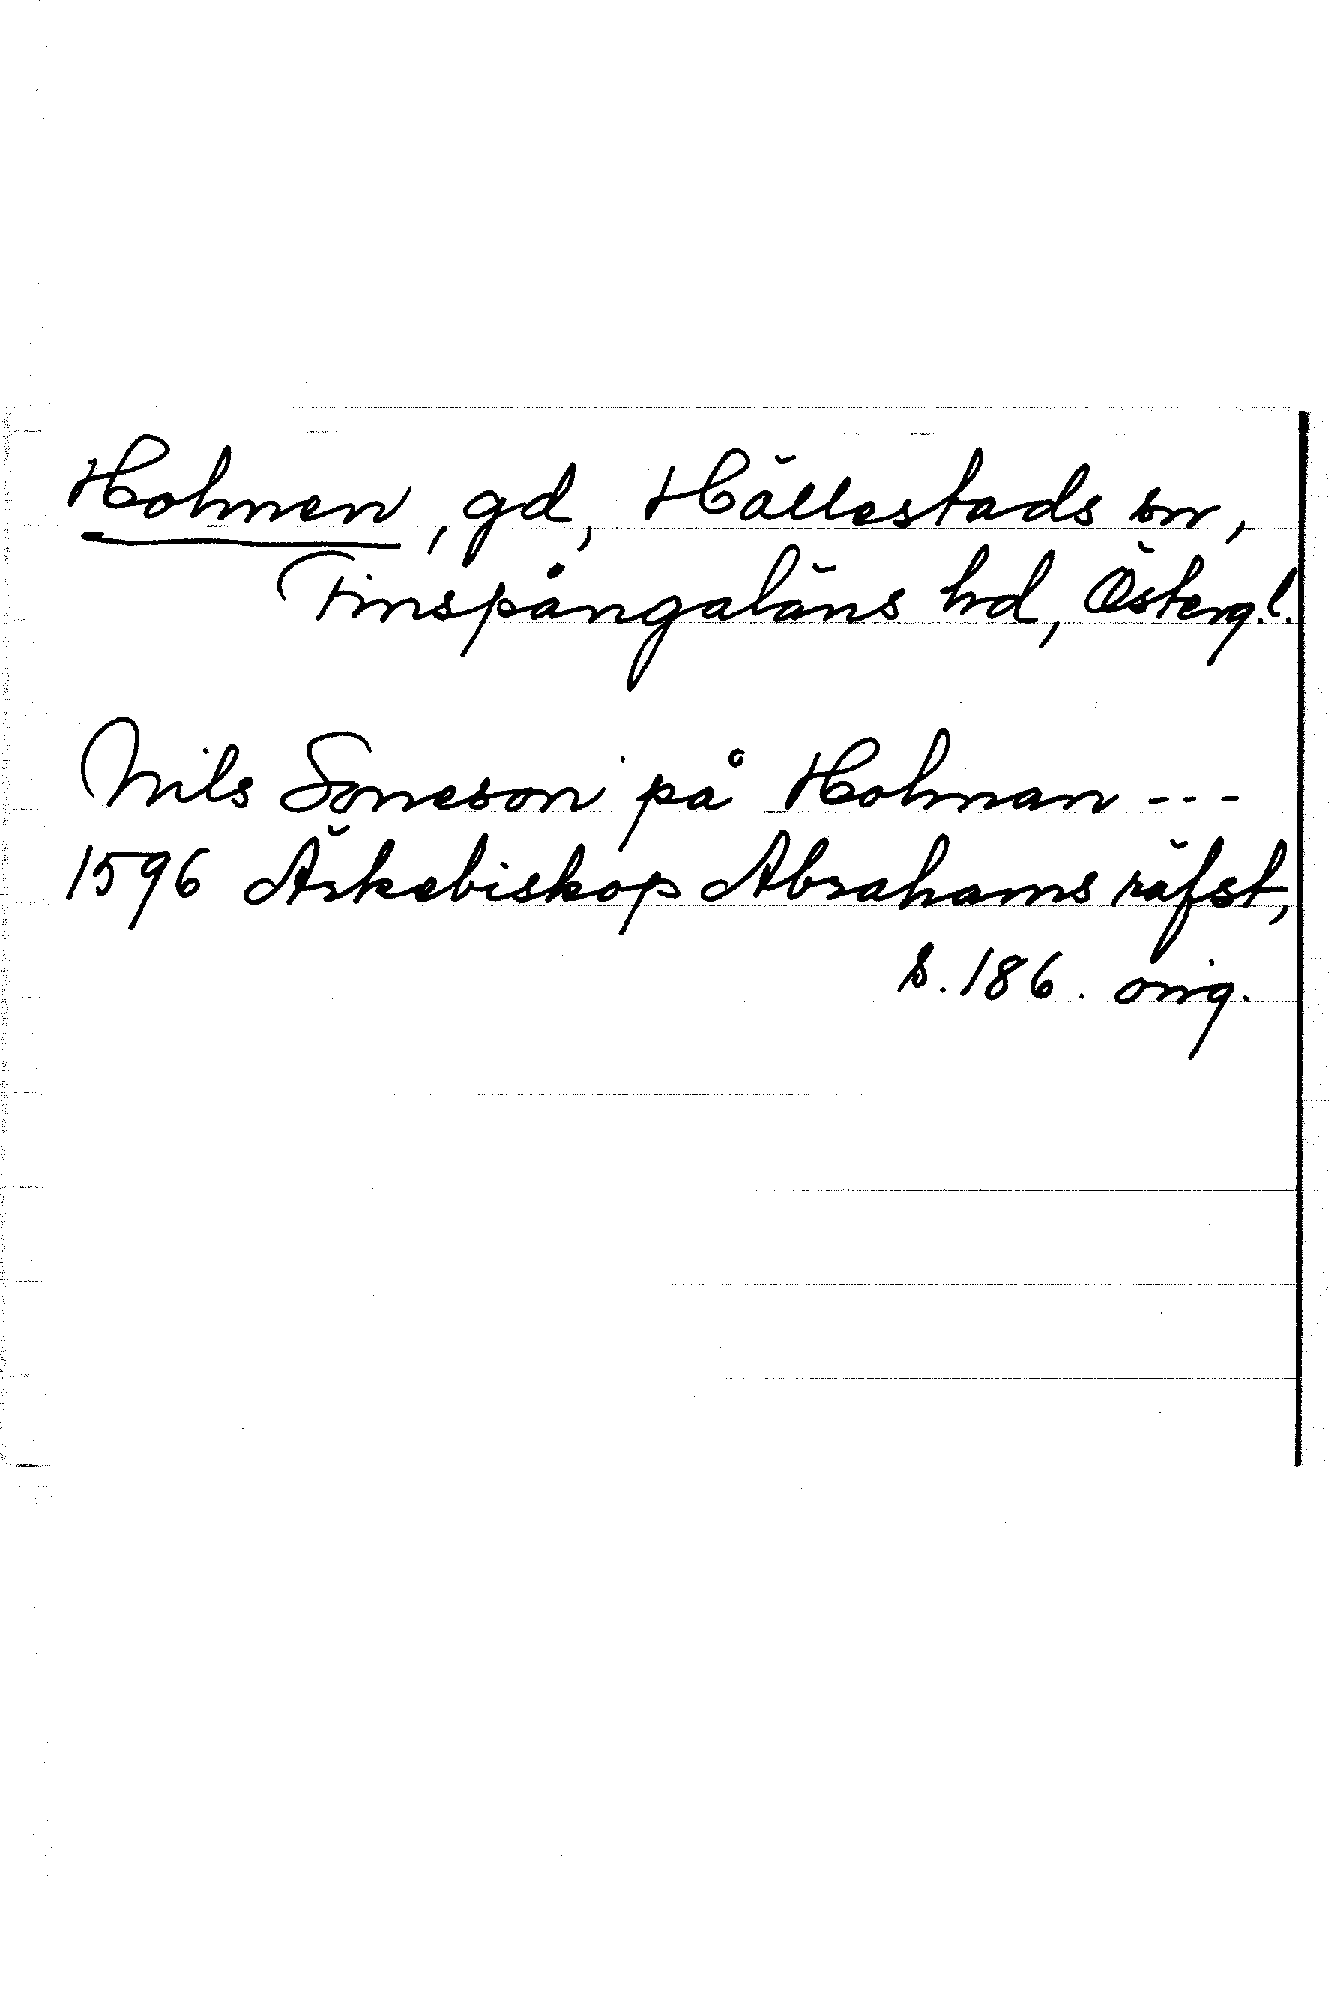 Holmen, gd, Hällestads sn,
Finspångaläns hd, Österg.l.
Nils Soneson på Holman ---
1596 Ärkebiskop Abrahams räfst,
s. 186. orig.